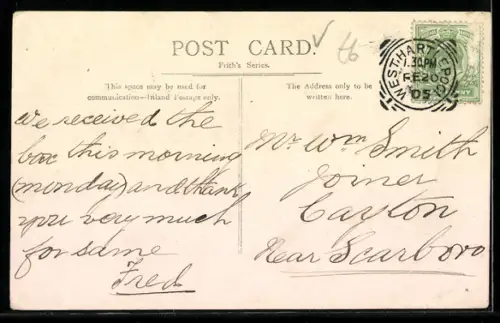 POST CARD.
Frith's Series.
This space may be used for
communication—Inland Postage only.
The Address only to be
written here.
WEST HARTLEPOOL
1.30PM
FE 20
05
We received the
box this morning
(monday) and thank
you very much
for same
Fred
Mr Wm Smith
Joiner
Cayton
Near Scarboro